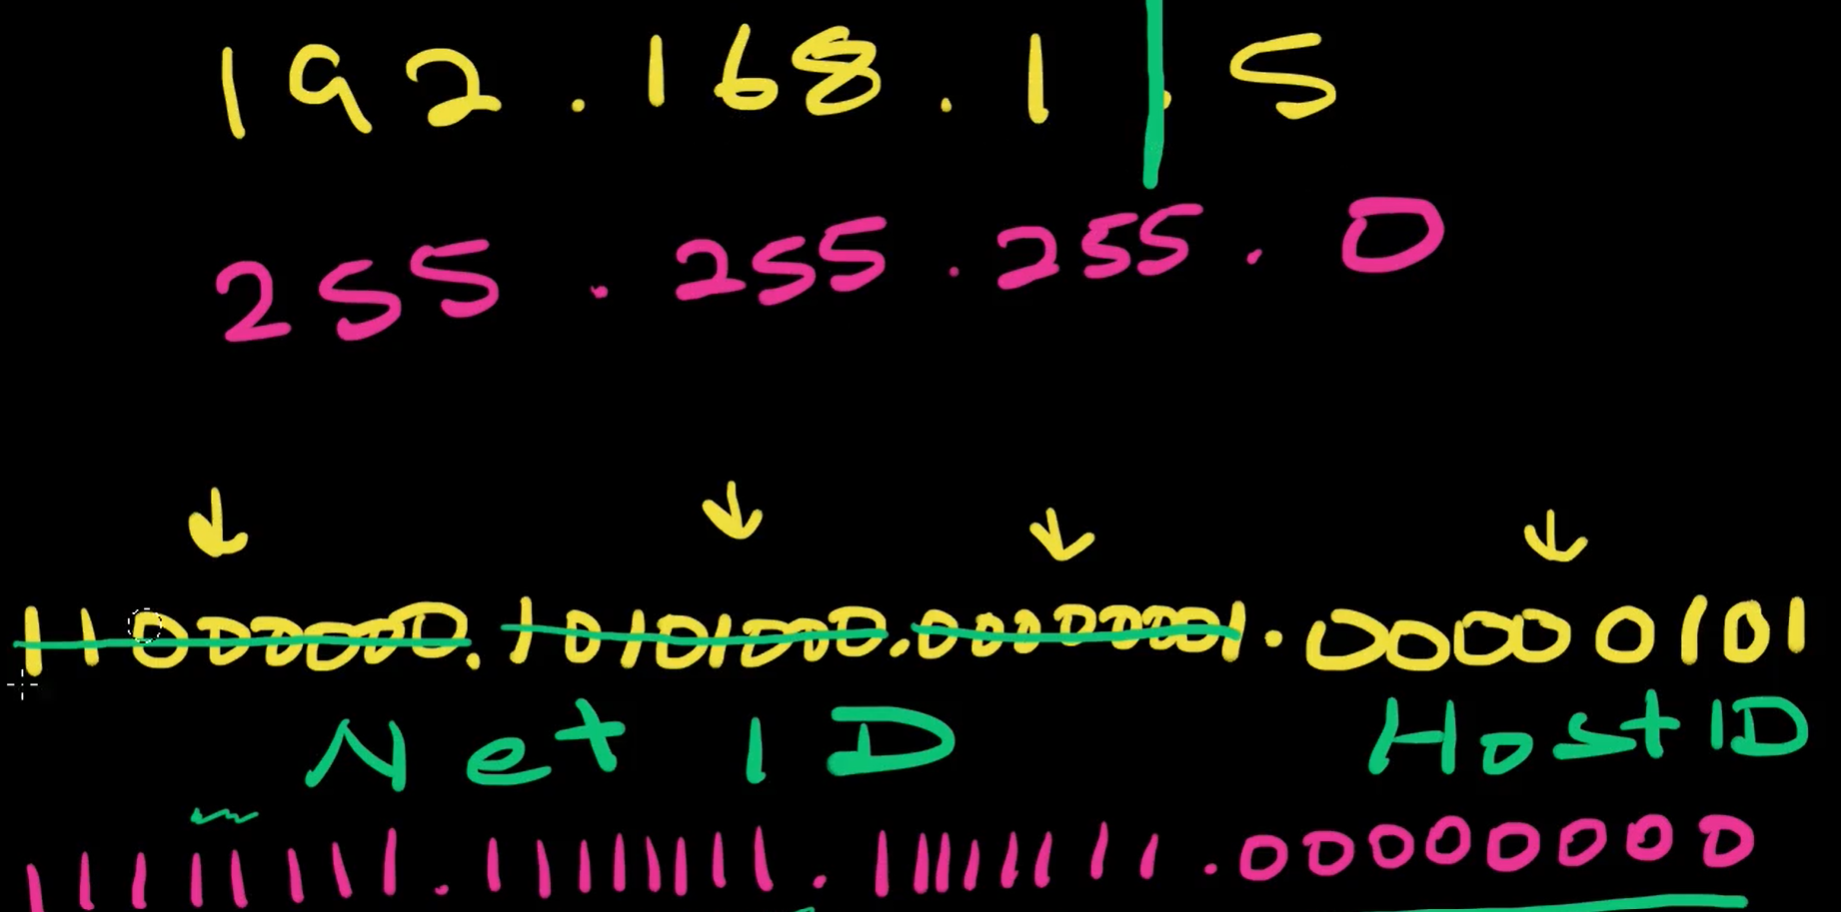 192.168.1.5
255.255.255.0
11000000.10101000.00000001.00000101
Net ID Host ID
11111111.11111111.11111111.00000000